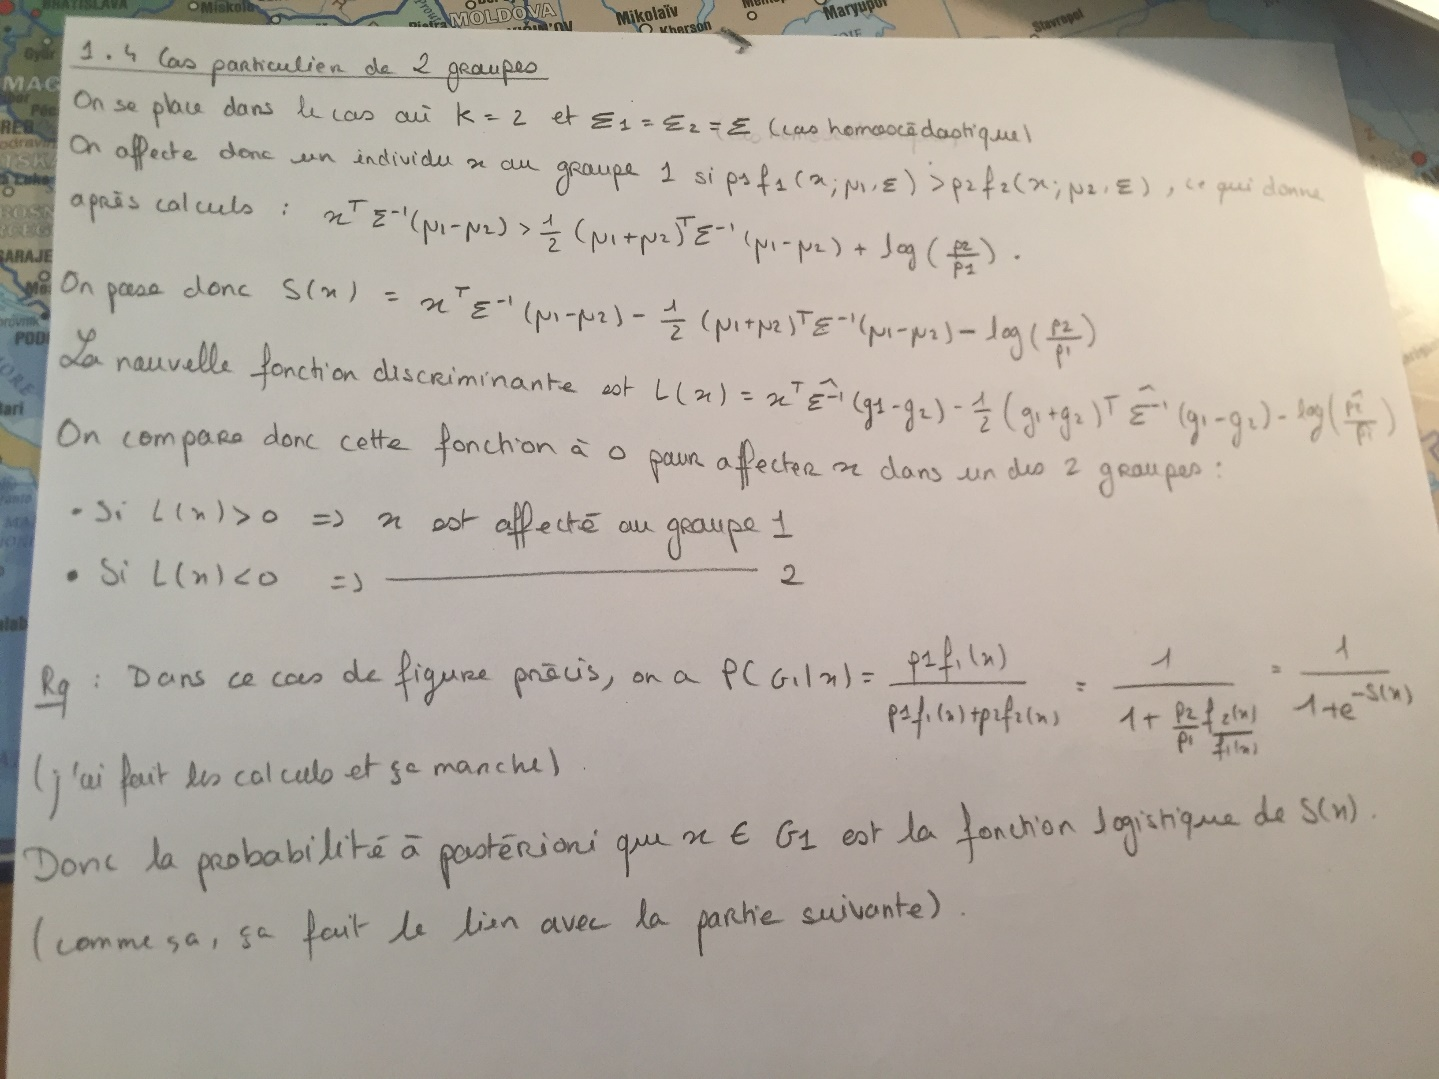 BRATISLAVA
Miskolc
MOLDOVA
Mikolaïv
Kherson
Maryupol
Stavropol
1.4 Cas particulier de 2 groupes
On se place dans le cas où K = 2 et Σ1 = Σ2 = Σ (cas homoscédastique)
On affecte donc un individu x au groupe 1 si p1f1(x; μ1, Σ) > p2f2(x; μ2, Σ), ce qui donne
après calculs : x^T Σ^-1 (μ1-μ2) > 1/2 (μ1+μ2)^T Σ^-1 (μ1-μ2) + log(p2/p1).
On pose donc S(x) = x^T Σ^-1 (μ1-μ2) - 1/2 (μ1+μ2)^T Σ^-1 (μ1-μ2) - log(p2/p1)
La nouvelle fonction discriminante est L(x) = x^T Σ̂^-1 (g1-g2) - 1/2 (g1+g2)^T Σ̂^-1 (g1-g2) - log(p̂2/p̂1)
On compare donc cette fonction à 0 pour affecter x dans un des 2 groupes :
• Si L(x) > 0 => x est affecté au groupe 1
• Si L(x) < 0 => ———————— 2
Rq : Dans ce cas de figure précis, on a P(G1|x) = p1f1(x)/(p1f1(x)+p2f2(x)) = 1/(1+ p2/p1 f2(x)/f1(x)) = 1/(1+e^-S(x))
(j'ai fait les calculs et ça marche).
Donc la probabilité à postériori que x ∈ G1 est la fonction logistique de S(x).
(comme ça, ça fait le lien avec la partie suivante).